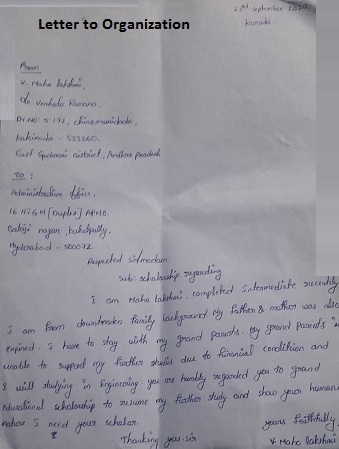 Letter to Organization
23rd September 2020,
kannada.
From
V. Maha lakshmi,
D/o Venkata Ramana
Dr.No: 5-172, chinamanidada,
kakinada - 533260.
East Godavari District, Andhra pradesh
To :
Administrative Office,
16 HIGH [Duplex] APHB
Balaji nagar, kukatpally,
Hyderabad - 500072
Respected sir/madam.
Sub: scholarship regarding
I am Maha lakshmi, completed Intermediate recently
I am from downtrodden family background My father & mother was also
expired. I have to stay with my grand parents. My grand parents
unable to support my further studies due to financial condition and
I will studying in Engineering you are humbly regarded you to grand
educational scholarship to resume my further study and show your human
nature I need your scholar.
Thanking you sir
yours faithfully,
V. Maha lakshmi